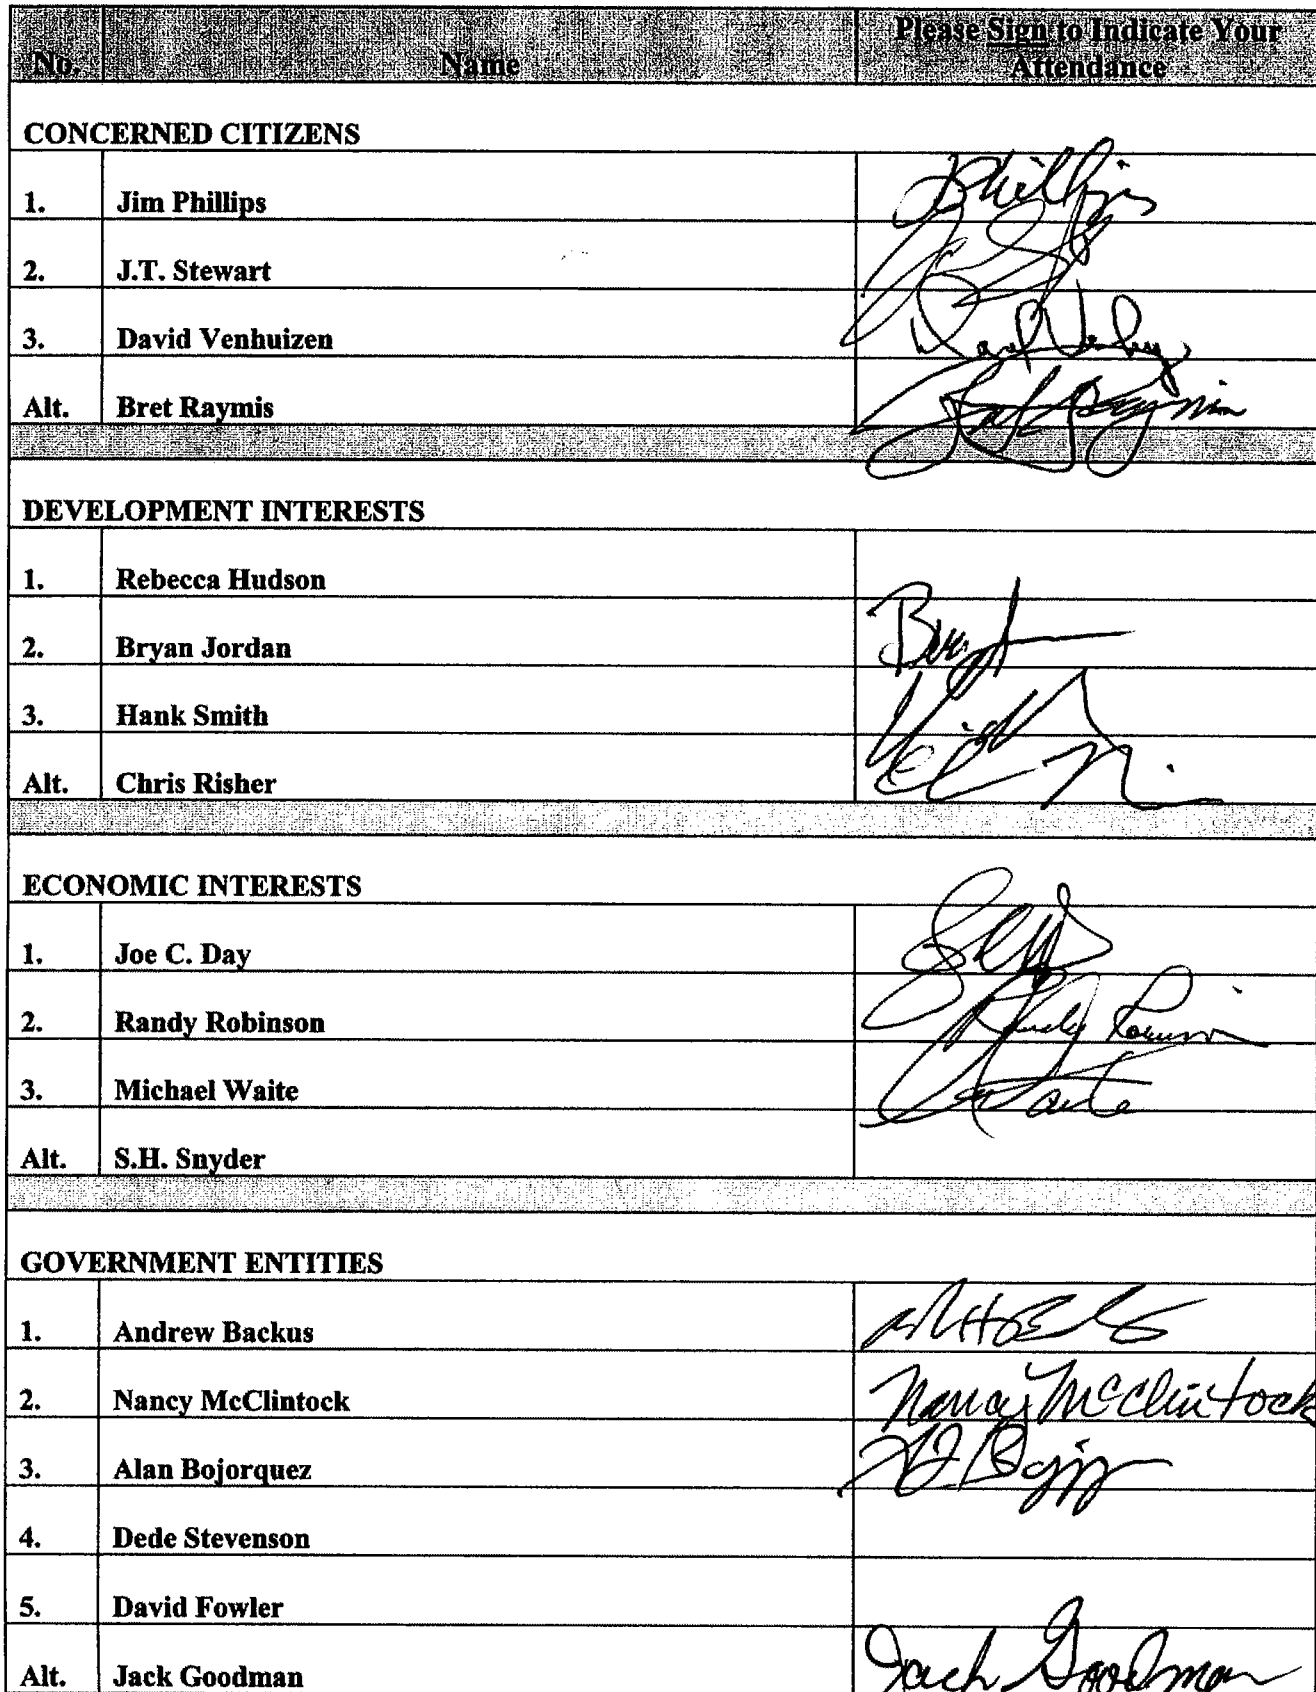 No. Name Please Sign to Indicate Your Attendance
CONCERNED CITIZENS
1. Jim Phillips JPhillips
2. J.T. Stewart
3. David Venhuizen
Alt. Bret Raymis
DEVELOPMENT INTERESTS
1. Rebecca Hudson
2. Bryan Jordan
3. Hank Smith
Alt. Chris Risher
ECONOMIC INTERESTS
1. Joe C. Day
2. Randy Robinson Randy Robinson
3. Michael Waite
Alt. S.H. Snyder
GOVERNMENT ENTITIES
1. Andrew Backus
2. Nancy McClintock Nancy McClintock
3. Alan Bojorquez
4. Dede Stevenson
5. David Fowler
Alt. Jack Goodman Jack Goodman